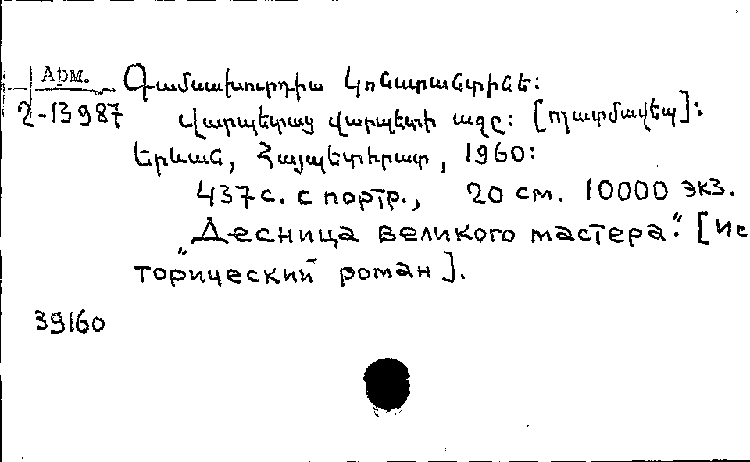 Арм. Գամսախուրդիա Կոնստանտինե:
2-13987 Վարպետաց վարպետի աջը: [պատմավեպ]:
Երևան, Հայպետհրատ, 1960:
437 с. с портр., 20 см. 10000 экз.
„Десница великого мастера“. [Ис
торический роман].
39160